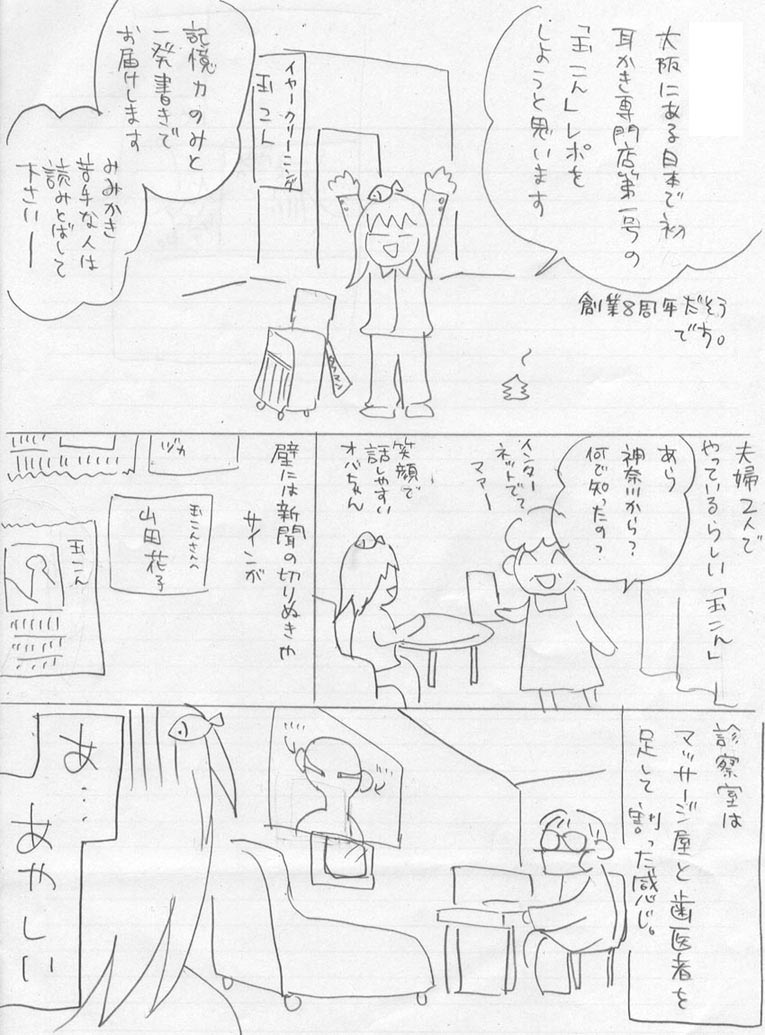 大阪にある日本で初
耳かき専門店第一号の
「玉こん」レポを
しようと思います
創業8周年だそう
です。
イヤークリーニング
玉こん
記憶力のみと
一発書きで
お届けします
みみかき
苦手な人は
読みとばして
下さいー
夫婦2人で
やっているらしい「玉こん」
あら
神奈川から?
何で知ったの?
インター
ネットでマァー
笑顔で
話しやすい
オバちゃん
壁には新聞の切りぬきや
サインが
ヅカ
玉こんさんへ
山田花子
玉こん
診察室は
マッサージ屋と歯医者を
足して割った感じ。
あ…
あやしい